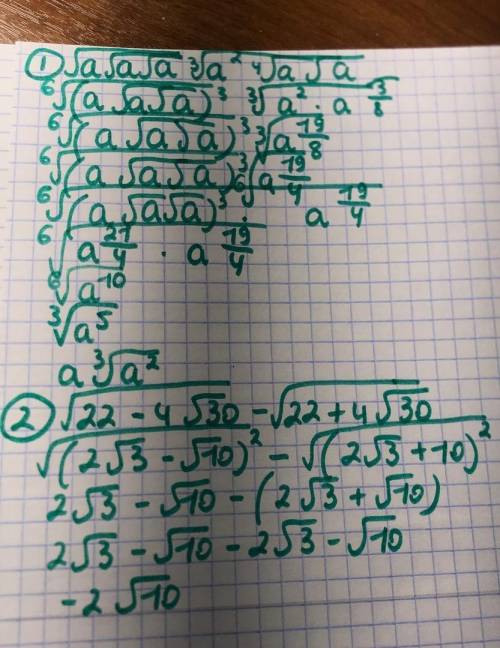 ① √(a√(a√a)) ∛(a² ⁴√(a√a))
⁶√((a√(a√a))³) ∛(a² · a^(3/8))
⁶√((a√(a√a))³) ∛(a^(19/8))
⁶√((a√(a√a))³) ⁶√(a^(19/4))
⁶√((a√(a√a))³ · a^(19/4))
⁶√(a^(21/4) · a^(19/4))
⁶√(a¹⁰)
∛(a⁵)
a∛(a²)
② √(22 - 4√30) - √(22 + 4√30)
√((2√3 - √10)²) - √((2√3 + 10)²)
2√3 - √10 - (2√3 + √10)
2√3 - √10 - 2√3 - √10
- 2√10